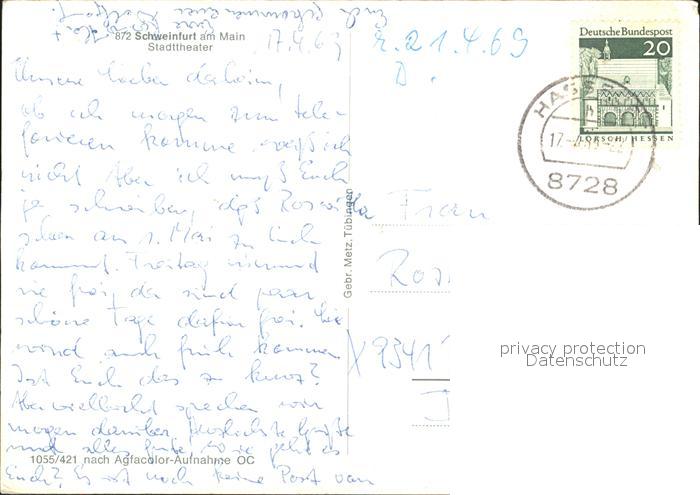 872 Schweinfurt am Main
Stadttheater
17.4.69
Unsere Lieben daheim,
ob ich morgen zum tele-
fonieren komme weiß ich
nicht. Aber ich muß Euch
ja schreiben, daß Roswitha
schon am 1. Mai zu Euch
kommt. Freitag nimmt
sie frei, da sind paar
schöne Tage dafür frei. Sie
wird auch früh kommen
Ist Euch das zu kurz?
Aber vielleicht sprechen wir
morgen darüber Herzlichste Grüße
und alles Gute, wie geht es
Euch? Es ist noch keine Post von
Euch gekommen
1055/421 nach Agfacolor-Aufnahme OC
Gebr. Metz, Tübingen
21.4.69
Deutsche Bundespost
20
LORSCH/HESSEN
HASS
17.
8728
Frau
Ros
9341
privacy protection
Datenschutz